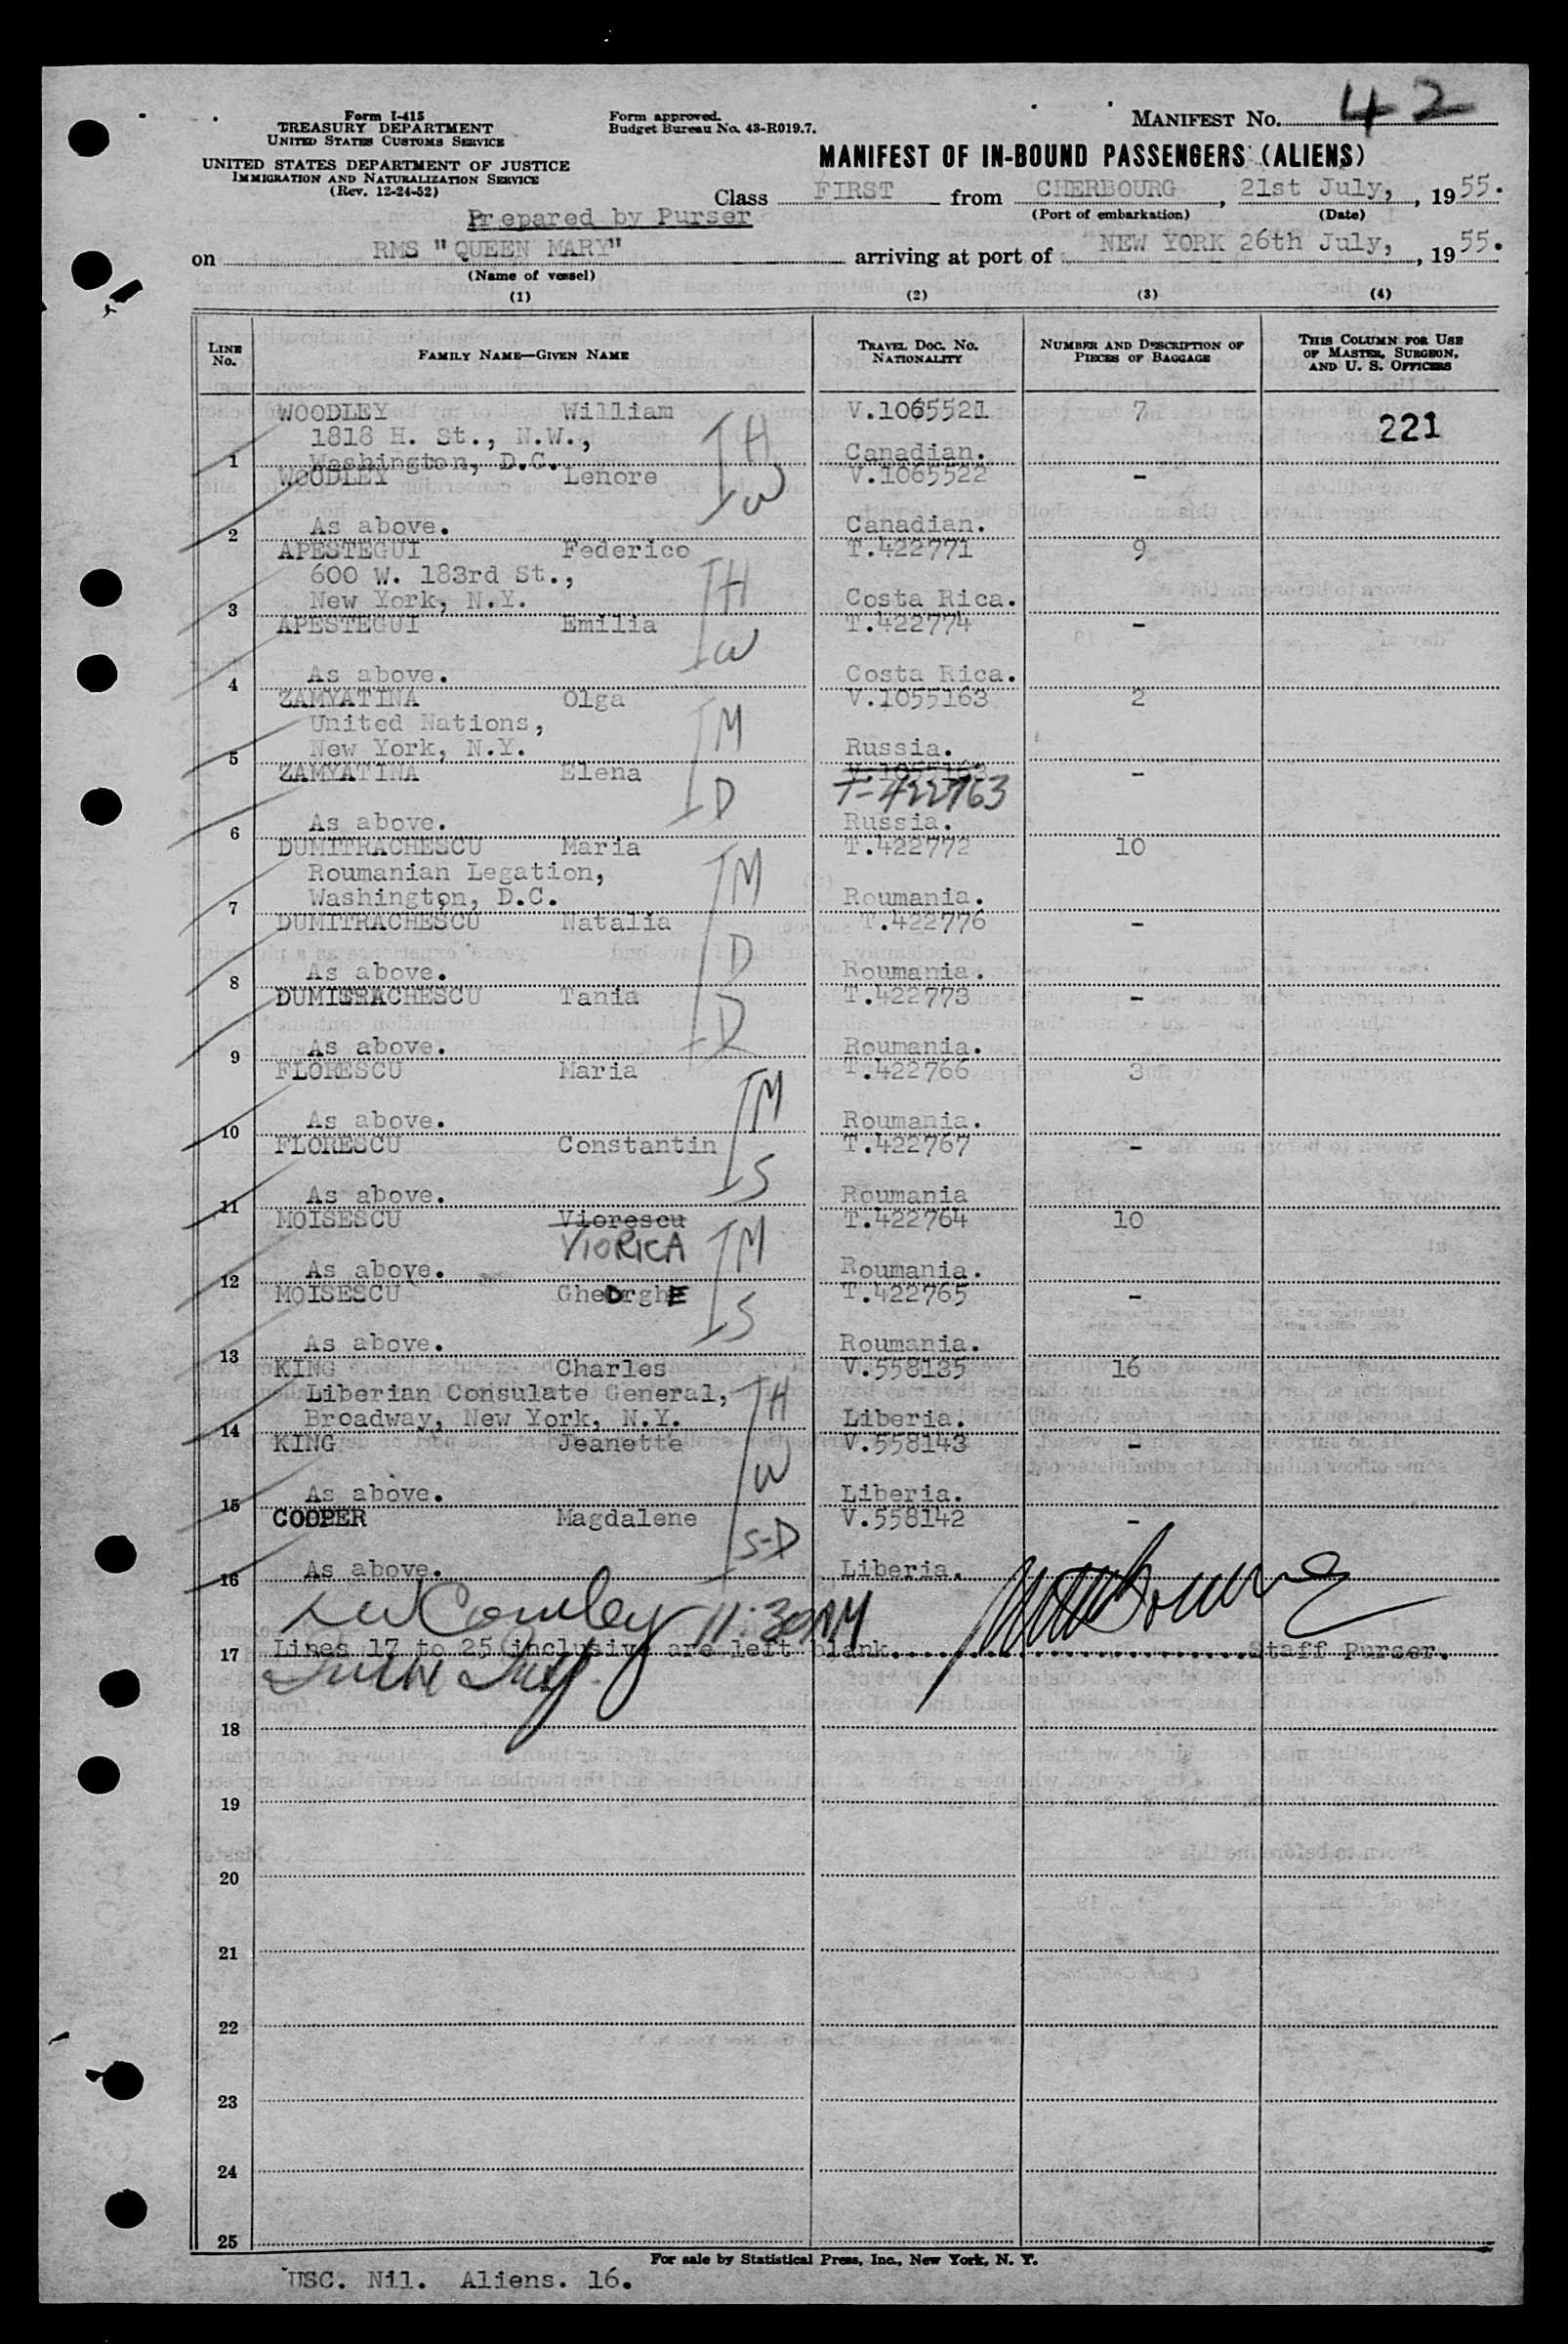 Form I-415
TREASURY DEPARTMENT
UNITED STATES CUSTOMS SERVICE
UNITED STATES DEPARTMENT OF JUSTICE
IMMIGRATION AND NATURALIZATION SERVICE
(Rev. 12-24-52)
Form approved.
Budget Bureau No. 43-R019.7.
MANIFEST NO. 42
MANIFEST OF IN-BOUND PASSENGERS (ALIENS)
Class FIRST from CHERBOURG, 21st July, 1955.
(Port of embarkation) (Date)
Prepared by Purser
on RMS "QUEEN MARY" arriving at port of NEW YORK 26th July, 1955.
(Name of vessel)
(1) (2) (3) (4)
LINE No. FAMILY NAME—GIVEN NAME TRAVEL DOC. NO. NATIONALITY NUMBER AND DESCRIPTION OF PIECES OF BAGGAGE THIS COLUMN FOR USE OF MASTER, SURGEON, AND U. S. OFFICERS
WOODLEY William V.1065521 7
1818 H. St., N.W., H 221
1 Washington, D.C. Canadian.
WOODLEY Lenore W V.1065522 -
2 As above. Canadian.
APESTEGUI Federico T.422771 9
600 W. 183rd St., H
3 New York, N.Y. Costa Rica.
APESTEGUI Emilia W T.422774 -
4 As above. Costa Rica.
ZAMYATINA Olga V.1055163 2
United Nations, M
5 New York, N.Y. Russia.
ZAMYATINA Elena D V.1055163 -
T-422763
6 As above. Russia.
DUMITRACHESCU Maria T.422772 10
Roumanian Legation, M
7 Washington, D.C. Roumania.
DUMITRACHESCU Natalia T.422776 -
8 As above. D Roumania.
DUMITRACHESCU Tania T.422773 -
9 As above. D Roumania.
FLORESCU Maria T.422766 3
10 As above. M Roumania.
FLORESCU Constantin T.422767 -
11 As above. S Roumania
MOISESCU Viorescu T.422764 10
VIORICA M
12 As above. Roumania.
MOISESCU GheOrghE T.422765 -
13 As above. S Roumania.
KING Charles V.558135 16
Liberian Consulate General, H
14 Broadway, New York, N.Y. Liberia.
KING Jeanette V.558143 -
15 As above. W Liberia.
COOPER Magdalene V.558142 -
16 As above. S-D Liberia.
11:30AM
17 Lines 17 to 25 inclusive are left blank. Staff Purser.
18
19
20
21
22
23
24
25
For sale by Statistical Press, Inc., New York, N. Y.
USC. Nil. Aliens. 16.